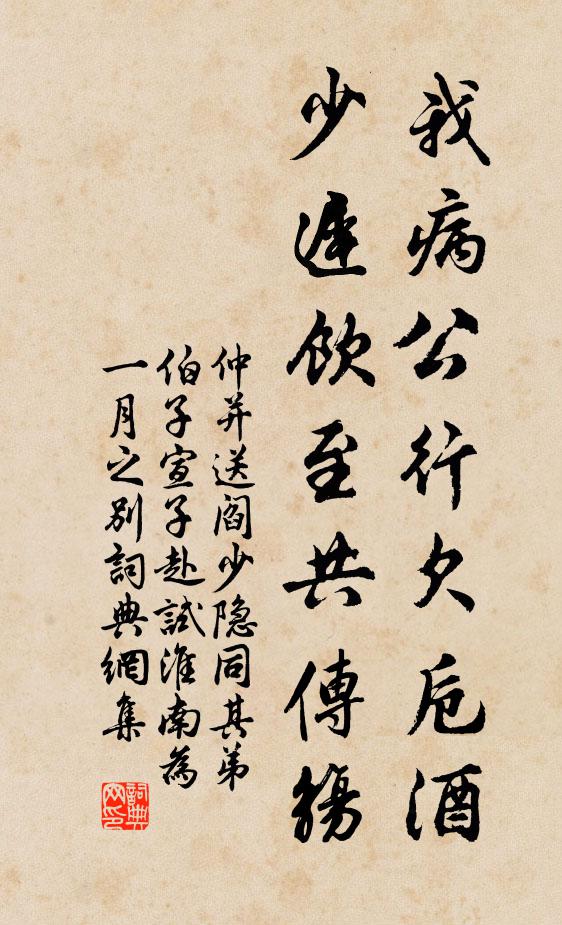 我病公行欠卮酒
少遲飲至共傳觴
仲并送閻少隐同其弟
伯子宣子赴試淮南為
一月之别詞典網集
詞典網印